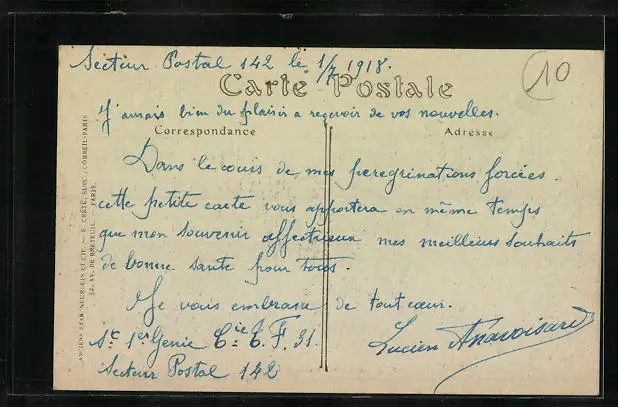 Secteur Postal 142 le 1/7 1918.
10
Carte Postale
J'aurais bien du plaisir a recevoir de vos nouvelles.
Correspondance
Adresse
Dans le cours de mes peregrinations forcées
cette petite carte vous apportera en même temps
que mon souvenir affectueux mes meilleurs souhaits
de bonne sante pour tous.
Je vous embrasse de tout cœur.
1er Genie Cie T. F. 31.
Lucien
Secteur Postal 142
ANCIENS ÉTAB. NEURDEIN ET CIE. — E. CRÉTÉ, SUCC., CORBEIL-PARIS
52, AV. DE BRETEUIL. PARIS.